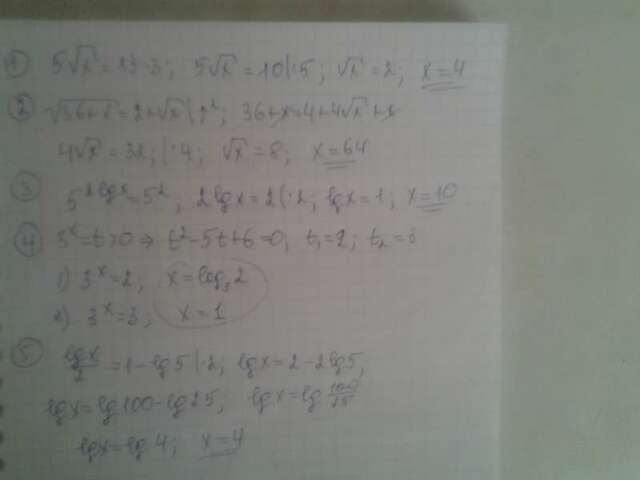 ① 5√x = 13-3; 5√x = 10 |:5; √x = 2; x=4
② √36+x = 2+√x |↑²; 36+x=4+4√x+x
4√x = 32; |:4; √x = 8; x=64
③ 5^2lgx = 5^2, 2lgx = 2 |:2; lgx = 1; x=10
④ 3^x=t>0 ⇒ t²-5t+6=0; t₁=2; t₂=3
1) 3^x=2; x=log₃2
2) 3^x=3; x=1
⑤ lgx/2 = 1-lg5 |·2; lgx = 2-2lg5;
lgx=lg100-lg25; lgx=lg 100/25
lgx=lg4; x=4